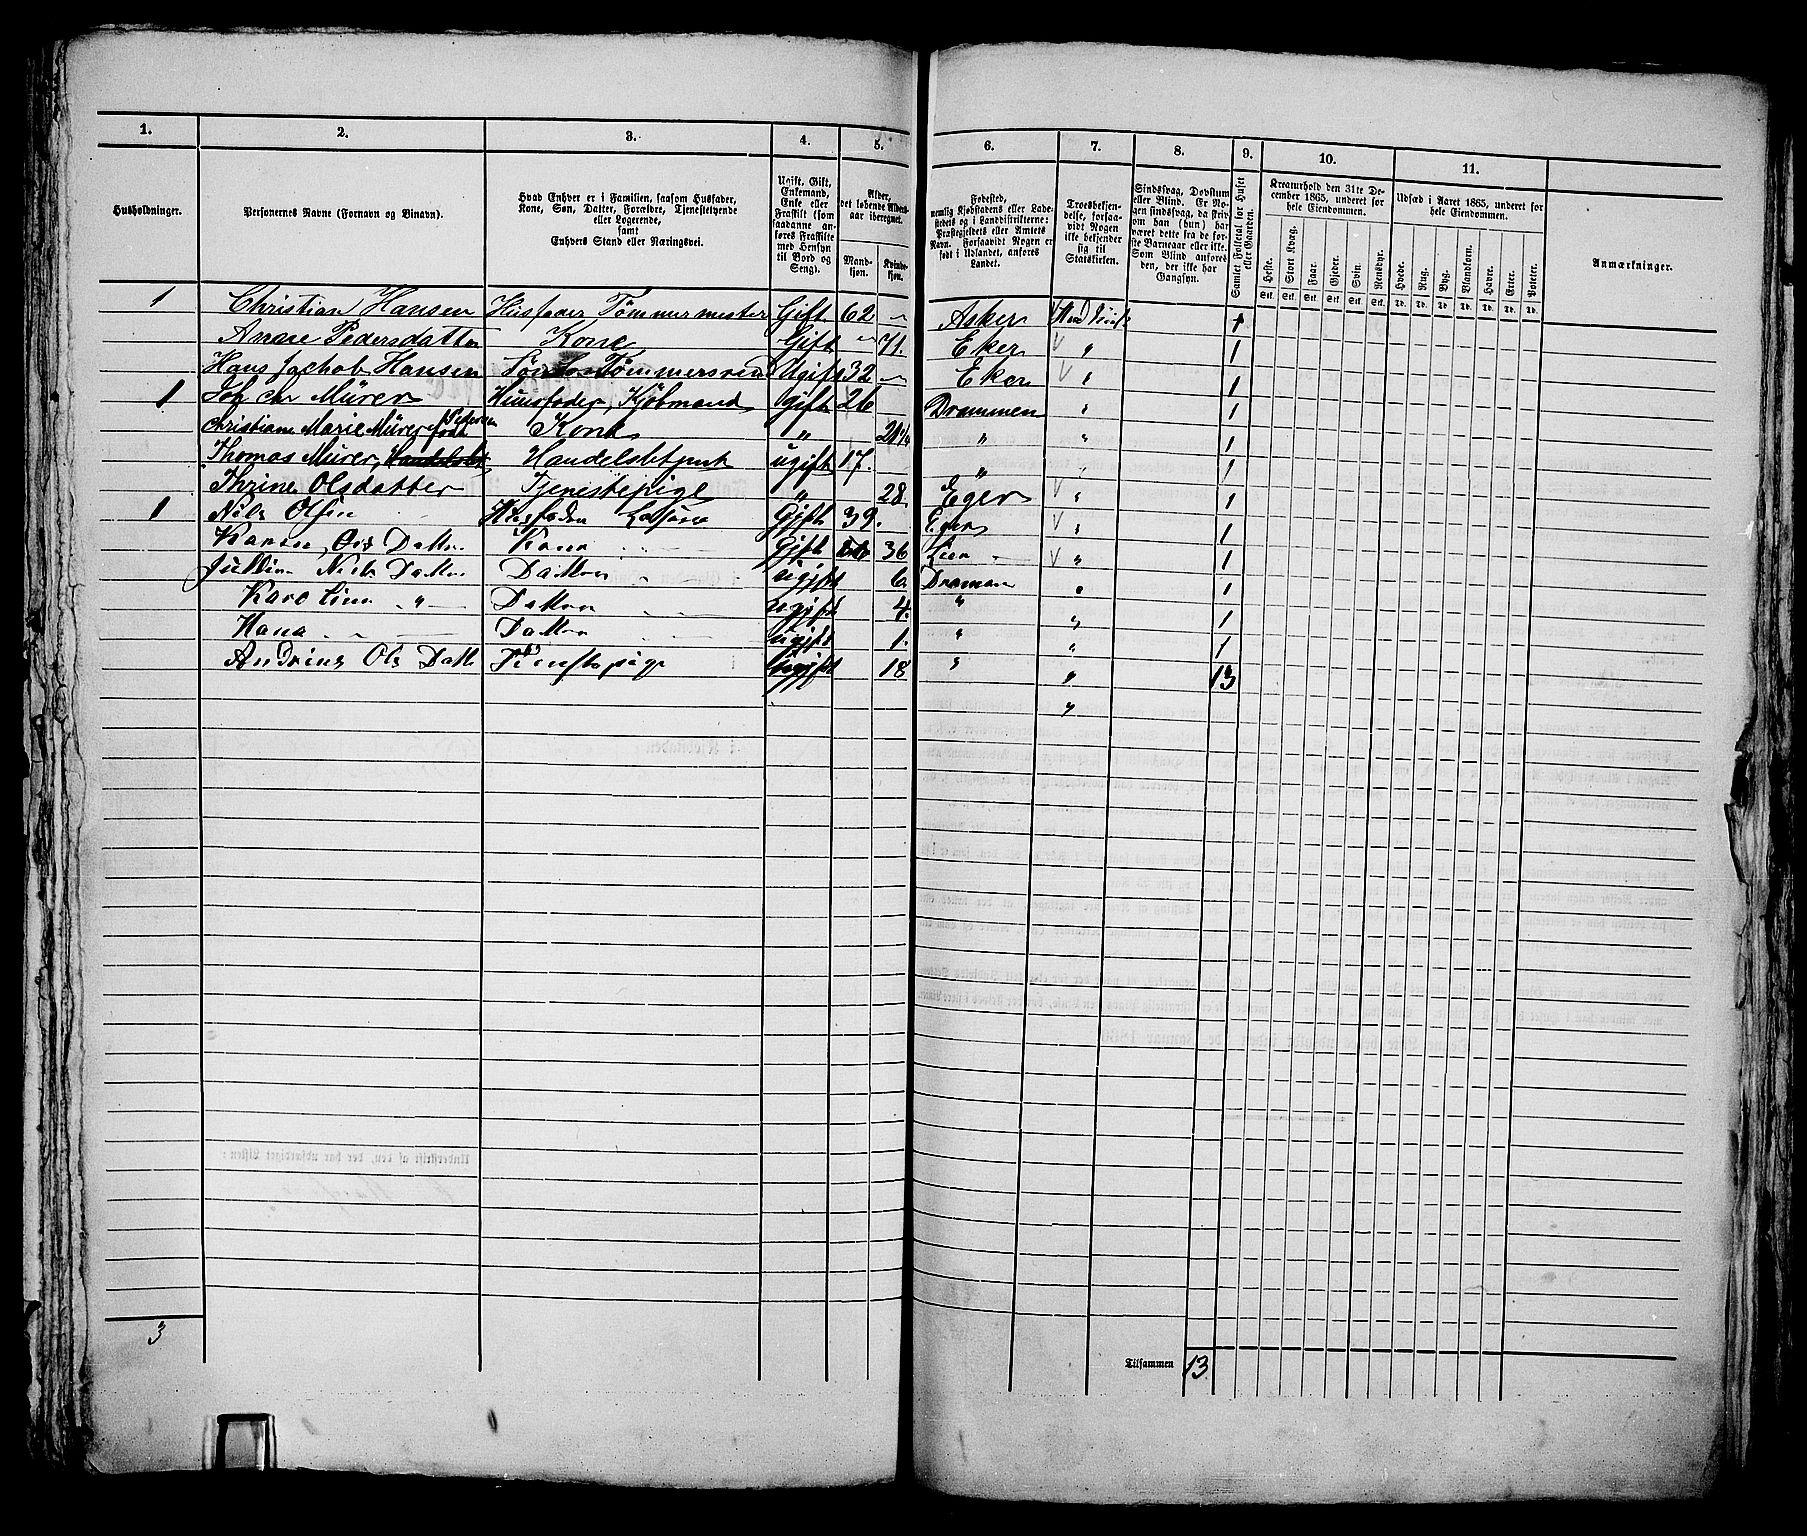 1. 2. 3. 4. 5. 6. 7. 8. 9. 10. 11.
Husholdninger.
Personernes Navne (Fornavn og Binavn).
Hvad Enhver er i Familien, saasom Husfader, Kone, Søn, Datter, Forældre, Tjenestetyende eller Logerende, samt Enhvers Stand eller Næringsvei.
Ugift, Gift, Enkemand, Enke eller Fraskilt (som saadanne anføres Fraskilte med Hensyn til Bord og Seng).
Alder, det løbende Alders-aar iberegnet.
Mand-kjøn. Kvinde-kjøn.
Fødested, nemlig Kjøbstadens eller Ladestedets og i Landdistrikterne: Præstegjeldets eller Amtets Navn. Forsaavidt Nogen er født i Udlandet, anføres Landet.
Troesbekjendelse, forsaavidt Nogen ikke bekjender sig til Statskirken.
Sindssvag, Døvstum eller Blind. Er Nogen sindssvag, da skrives om han (hun) har været dette fra de første Barneaar eller ikke. Som Blind anføres den, der ikke har Gangsyn.
Samlet Folketal for Huset eller Gaarden.
Kreaturhold den 31te December 1865, underet for hele Eiendommen.
Heste. Stort Kvæg. Faar. Gjeder. Svin. Rensdyr.
Stk. Stk. Stk. Stk. Stk. Stk.
Udsæd i Aaret 1865, underet for hele Eiendommen.
Hvede. Rug. Byg. Blandkorn. Havre. Erter. Poteter.
Td. Td. Td. Td. Td. Td. Td.
Anmærkninger.
1 Christian Hansen Husfader Tømmermester Gift 62 Asker 1
Anne Pedersdatter Kone Gift 71. Eker " 1
Hans Jachob Hansen Ugift 32 Eker " 1
1 Murer Huusfader, Kjöbmand gift 26 Drammen " 1
Christiane Marie Mürer født Pedersen Kone " " " 1
Thomas Mürer, Handelsbetjent ugift 17. " " 1
Thrine Olsdatter Tjenestepige " 28. Eger " 1
1 Nils Olsen Husfader Gift 39. Eger " 1
Ols Datter Kone Gift 36 Lier " 1
Nils Datter Datter ugift 6. Dramen " 1
Karoline " Datter ugift 4. " " 1
Hana Datter ugift 1. " " 1
Ols Datter Tjenstepige ugift 18 " " 13
"
3
Tilsammen 13